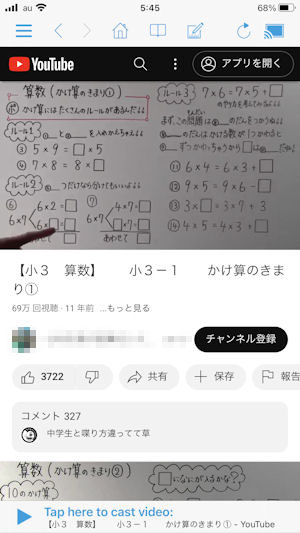 au
5:45
68%
YouTube
アプリを開く
算数(かけ算のきまり①)
かけ算にはたくさんのルールがあるんだよ
ルール1
③ 5×9=□×5
④ 7×8=8×□
ルール2
つだけなら分けてもいいよ
⑥ 6×2=□
6×7
6×□=□
あわせて□
⑦
6×7
4×7=□
あわせて□
ルール3
7×6=7×5+□
のやり方を考えてみよう
まず、この問題は
⑪ 6×4=6×3+□
⑫ 9×5=9×6-□
⑬ 3×□=3×7+3
⑭ 4×5=4×3+□
【小3 算数】 小3-1 かけ算のきまり①
69万 回視聴・11 年前 ...もっと見る
チャンネル登録
3722
共有
保存
報告
コメント 327
中学生と喋り方違ってて草
算数(かけ算のきまり②)
10のかけ算
□になにが入るかな?
Tap here to cast video:
【小3 算数】 小3-1 かけ算のきまり① - YouTube